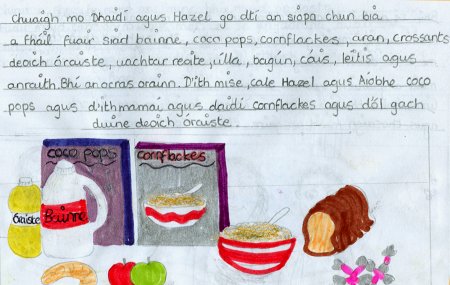 Chuaigh mo Dhaidí agus Hazel go dtí an siopa chun bia
a fháil fuair siad bainne, coco pops, cornflackes, aran, crossants
deoich óraiste, uachtar reoite, úlla, bagún, cáis, leitis agus
anraith. Bhí an ocras orainn. D'ith mise, cale Hazel agus Aiobhe coco
pops agus d'ith mamaí agus daidí cornflackes agus d'ól gach
duine deoich óraiste.
coco pops
cornflackes
óraiste
Bainne